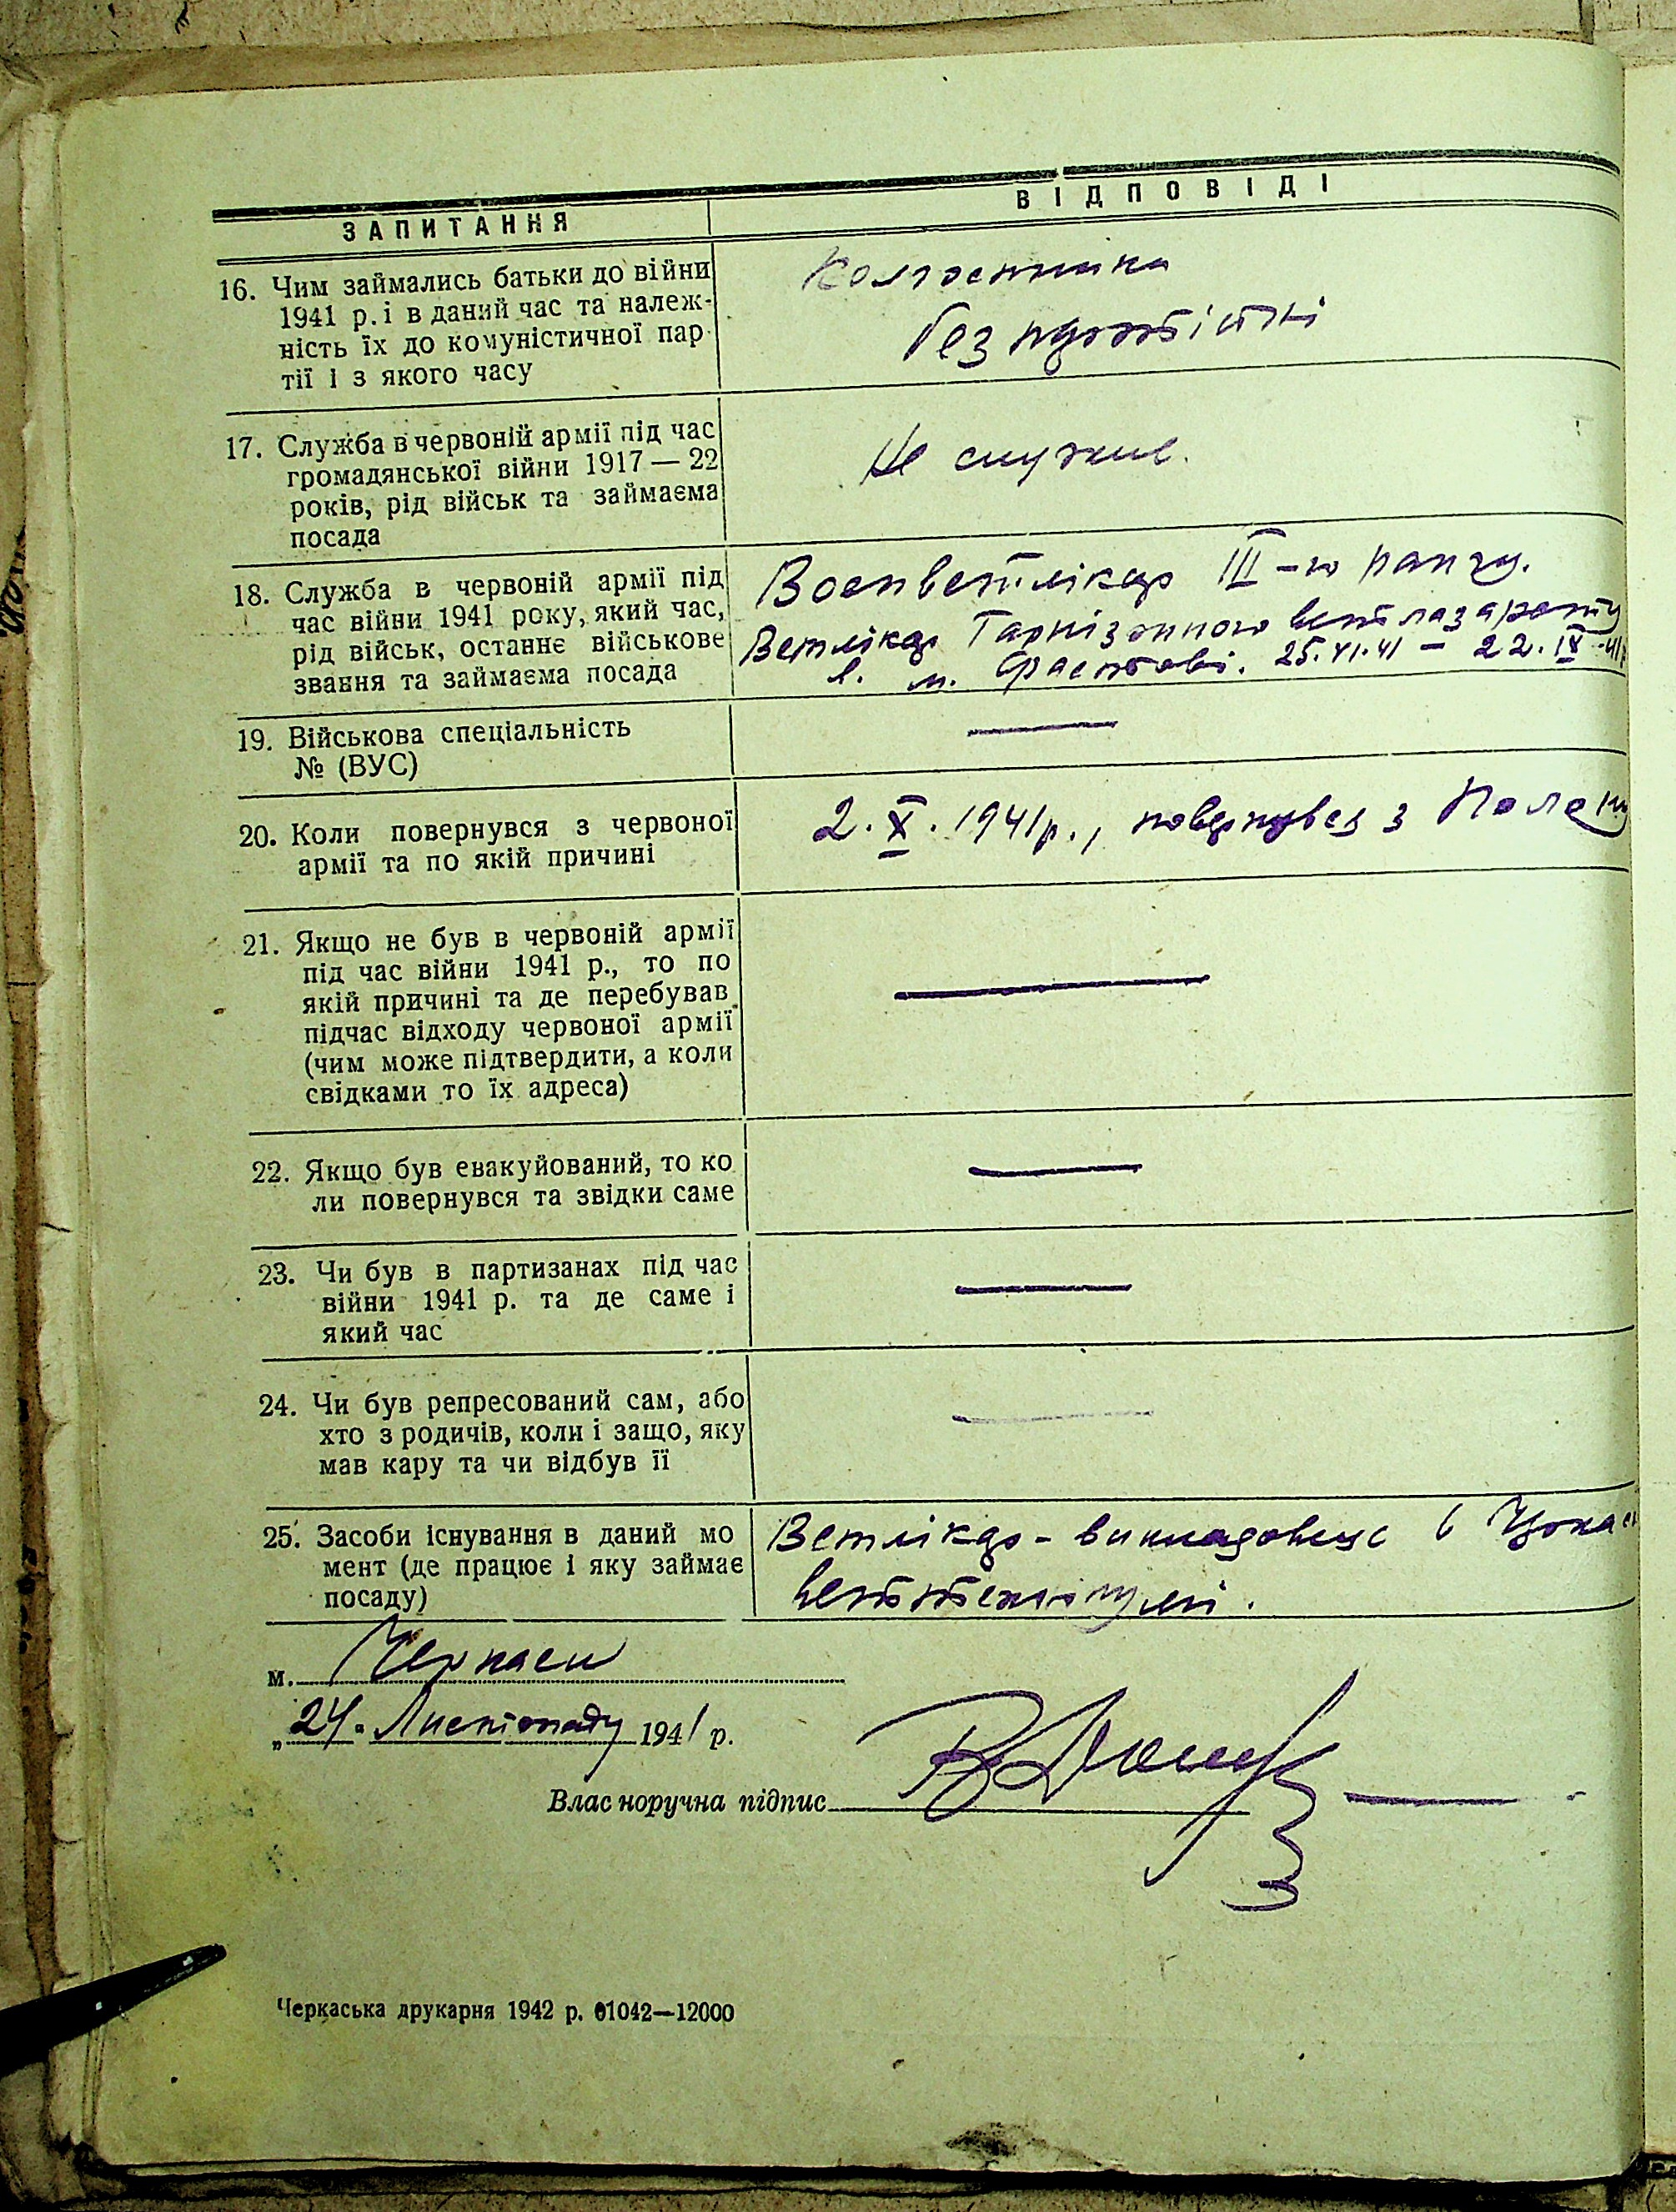 ЗАПИТАННЯ
ВІДПОВІДІ
16. Чим займались батьки до війни
1941 р. і в даний час та належ-
ність їх до комуністичної пар
тії і з якого часу
Колгоспники
без партійні
17. Служба в червоній армії під час
громадянської війни 1917 — 22
років, рід військ та займаєма
посада
Не служив.
18. Служба в червоній армії під
час війни 1941 року, який час,
рід військ, останнє військове
звання та займаєма посада
Военветлікар III-го рангу.
Ветлікар Гарнізонного ветлазарету
в. м. Фастові. 25.VI.41 — 22.IX.41
19. Військова спеціальність
№ (ВУС)
—
20. Коли повернувся з червоної
армії та по якій причині
2.X.1941р., повернувся з Полону
21. Якщо не був в червоній армії
під час війни 1941 р., то по
якій причині та де перебував
підчас відходу червоної армії
(чим може підтвердити, а коли
свідками то їх адреса)
—
22. Якщо був евакуйований, то ко
ли повернувся та звідки саме
—
23. Чи був в партизанах під час
війни 1941 р. та де саме і
який час
—
24. Чи був репресований сам, або
хто з родичів, коли і защо, яку
мав кару та чи відбув її
—
25. Засоби існування в даний мо
мент (де працює і яку займає
посаду)
Ветлікар - викладовець в
веттехнікумі.
м. Черкаси
„24" Листопаду 1941 р.
Власноручна підпис
Черкаська друкарня 1942 р. 01042—12000